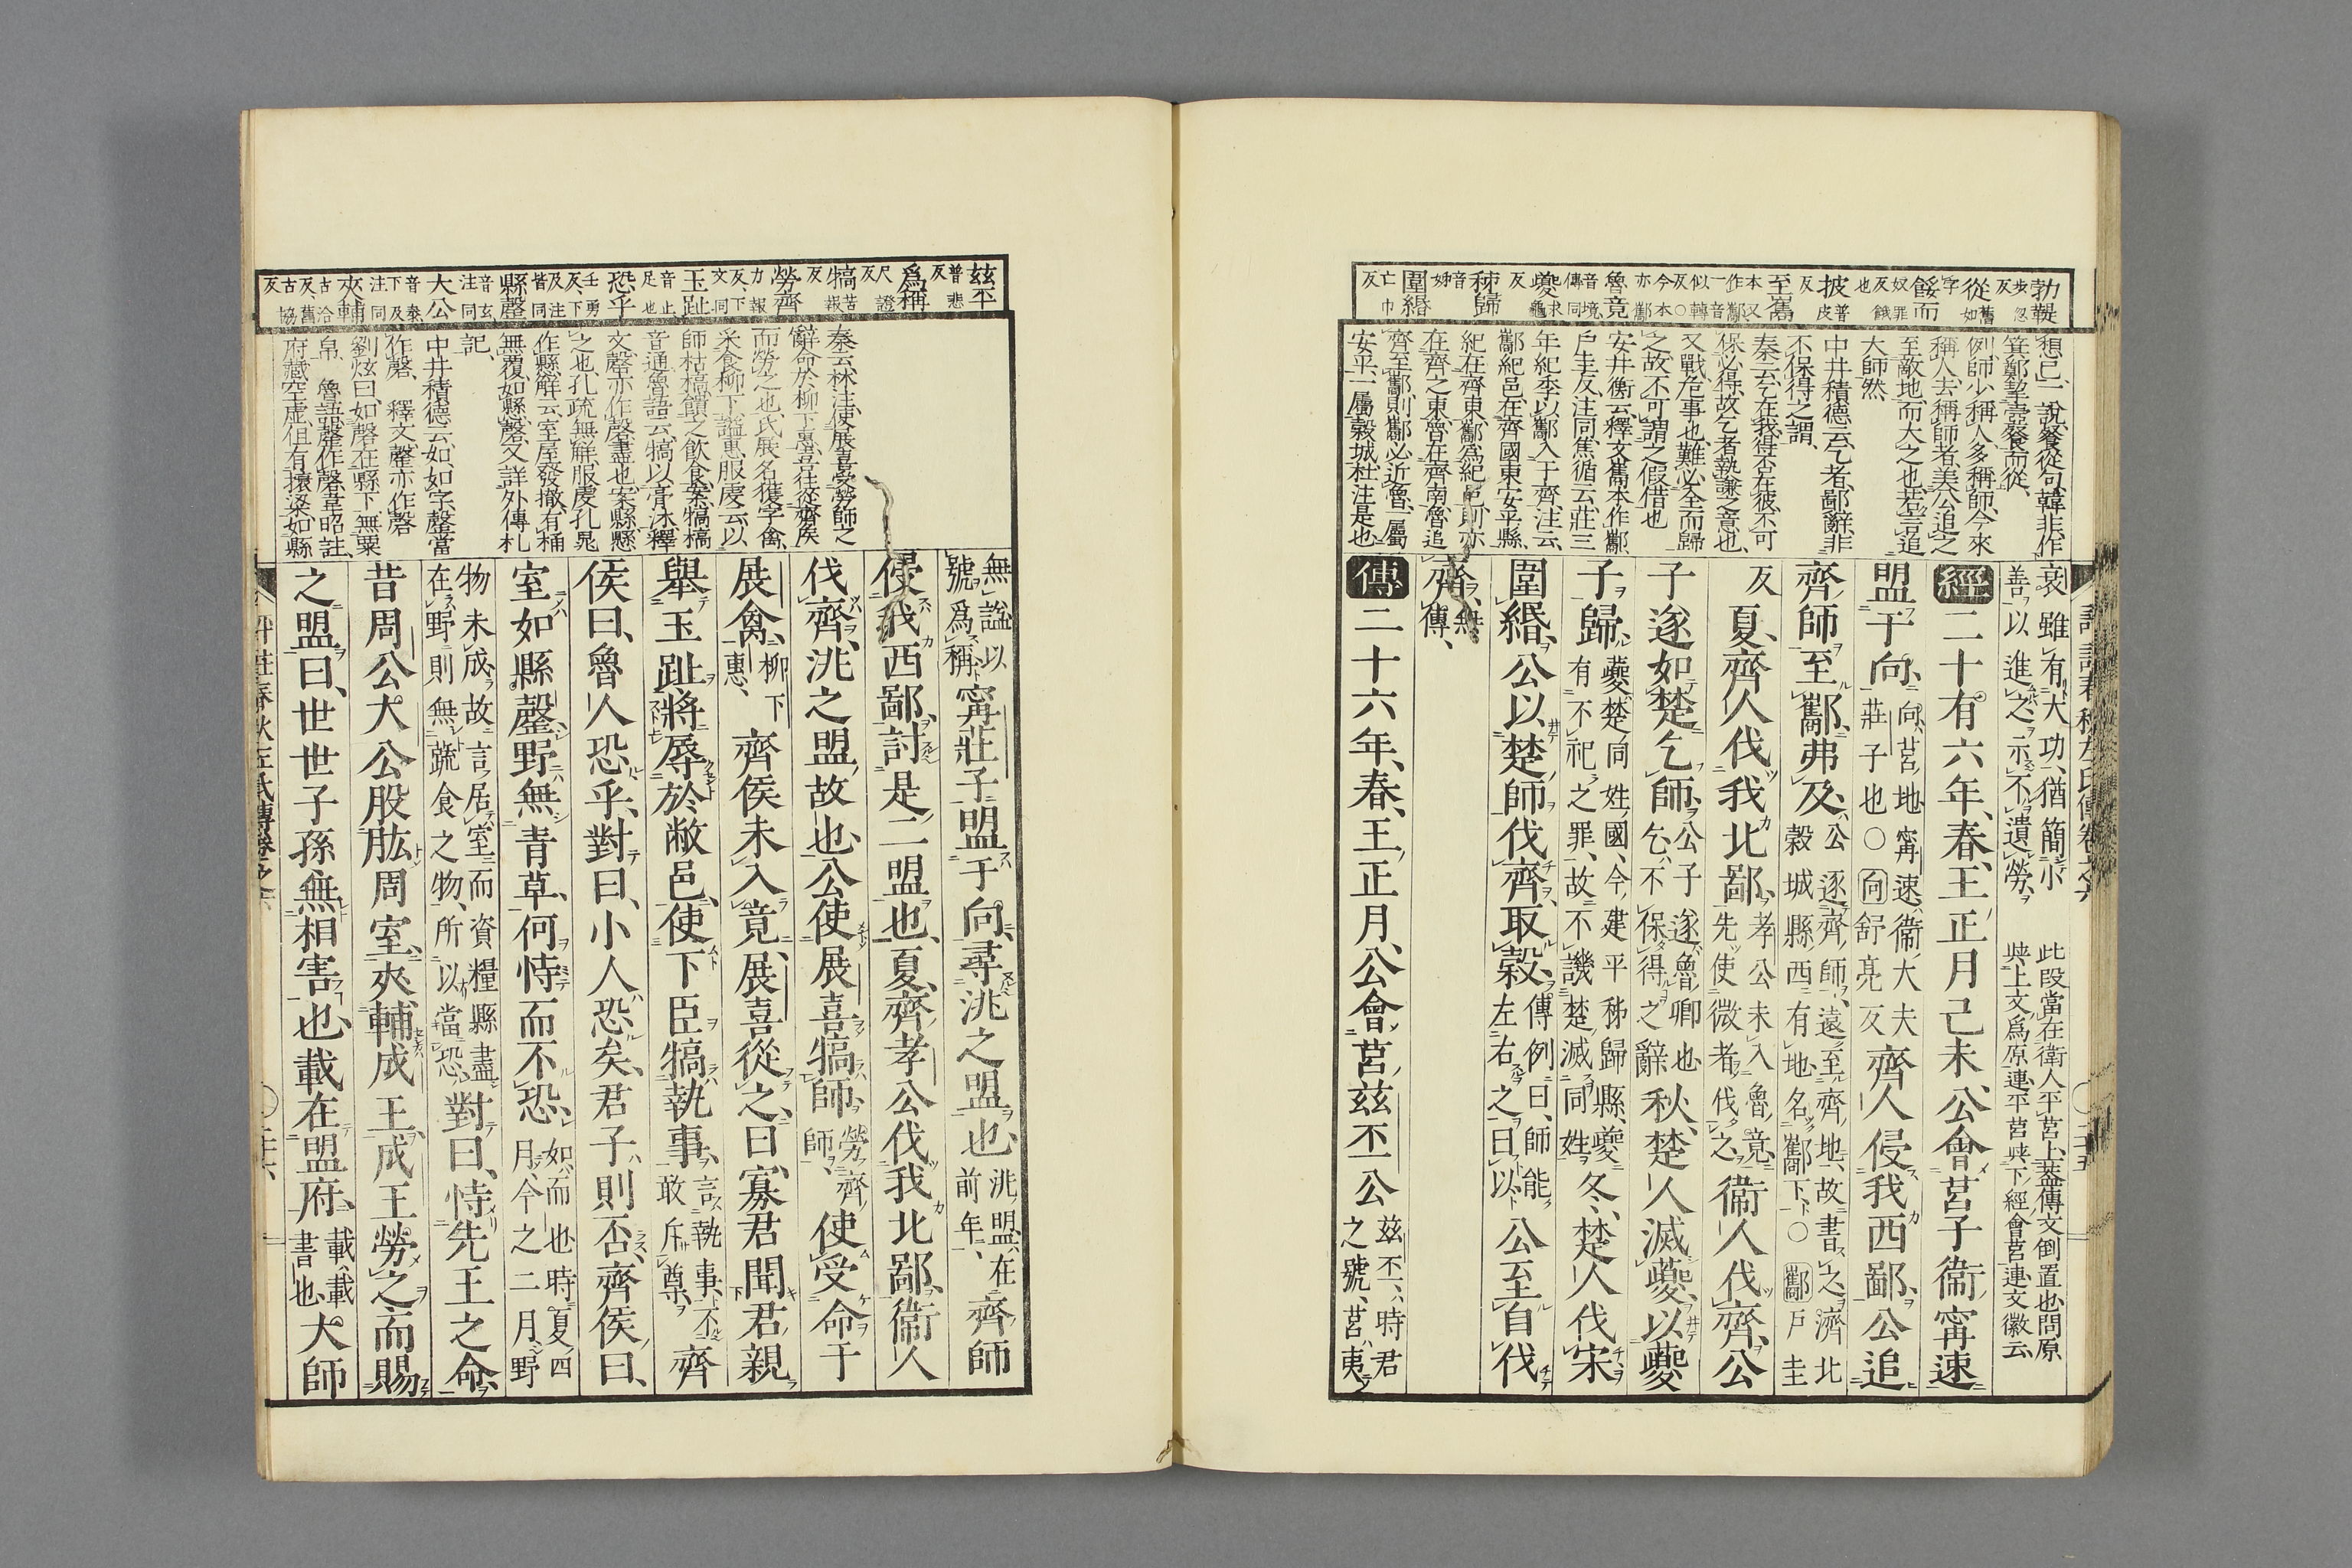 勃鞮
步忽反
從
舊如字
餒而
奴罪反餓也
披
普皮反
至酅
本又作酅
魯竟
音境傳同
夔
求龜反
秭歸
音姊
圍緡
亡巾反
想已一說餐從句韓非作
箕鄭挈壺餐而從
例師少稱人多稱師今來
稱人去稱師者美公追之
至敵地而大之也若言追
大師然
中井積德云乞者鄙辭非
不保得之謂
秦云乞在我得否在彼不可
保必得故乞者執謙之意也
又戰危事也難必全而歸
之故不可謂之假借也
安井衡云釋文酅本作酅
戶圭反注同焦循云莊三
年紀季以酅入于齊注云
酅紀邑在齊國東安平縣
紀在齊東酅爲紀邑則亦
在齊之東魯在齊南魯追
齊至酅則酅必近魯一屬
安平一屬穀城杜注是也
衰雖有大功猶簡小
善以進之示不遺勞
此段當在衛人平莒上蓋傳文倒置也問原
與上文爲原連平莒與下經會莒連文徽云
經二十有六年春王正月己未公會莒子衞甯速
盟于向向莒地甯速衞大夫莊子也〇向舒亮反齊人侵我西鄙公追
齊師至酅弗及公逐齊師遠至齊地故書之濟北穀城縣西有地名酅下〇酅戶圭
反夏齊人伐我北鄙孝公未入魯竟先使微者伐之衞人伐齊公
子遂如楚乞師公子遂魯卿也乞不保得之辭秋楚人滅夔以夔
子歸夔楚同姓國今建平秭歸縣夔有不祀之罪故不譏楚滅同姓冬楚人伐宋
圍緡公以楚師伐齊取穀傳例曰師能左右之曰以公至自伐
齊無傳
傳二十六年春王正月公會莒茲丕公茲丕時君之號莒夷
茲丕
普悲反
爲稱
尺證反
犒
苦報反
勞齊
力報反下文同
玉趾
音止足也
恐乎
丘勇反下及注皆同
縣罄
音玄注同
大公
音泰下及注同
夾輔
古洽反舊古協反
秦云林注使展喜受勞師之
辭命於柳下惠言往從齊侯
而勞之也氏展名獲字禽
采食柳下謚惠服虔云以
師枯槁饋之飲食案犒槁
音通魯語云犒以膏沐釋
文罄亦作磬盡也案縣懸
之也孔疏無解服虔孔晁
作縣解云室屋發撤有桶
無覆如縣磬又詳外傳札
記
中井積德云如如字罄當
作磬 釋文罄亦作磬
劉炫曰如磬在縣下無粟
帛 魯語罄作磬韋昭註
府藏空虛但有榱梁如縣
無謚以號爲稱甯莊子盟于向尋洮之盟也洮盟在前年齊師
侵我西鄙討是二盟也夏齊孝公伐我北鄙衞人
伐齊洮之盟故也公使展喜犒師勞齊師使受命于
展禽柳下惠齊侯未入竟展喜從之曰寡君聞君親
舉玉趾將辱於敝邑使下臣犒執事言執事不敢斥尊齊
侯曰魯人恐乎對曰小人恐矣君子則否齊侯曰
室如縣罄野無青草何恃而不恐如而也時夏四月今之二月野
物未成故言居室而資糧縣盡在野則無蔬食之物所以當恐對曰恃先王之命
昔周公大公股肱周室夾輔成王成王勞之而賜
之盟曰世世子孫無相害也載在盟府載載書也大師